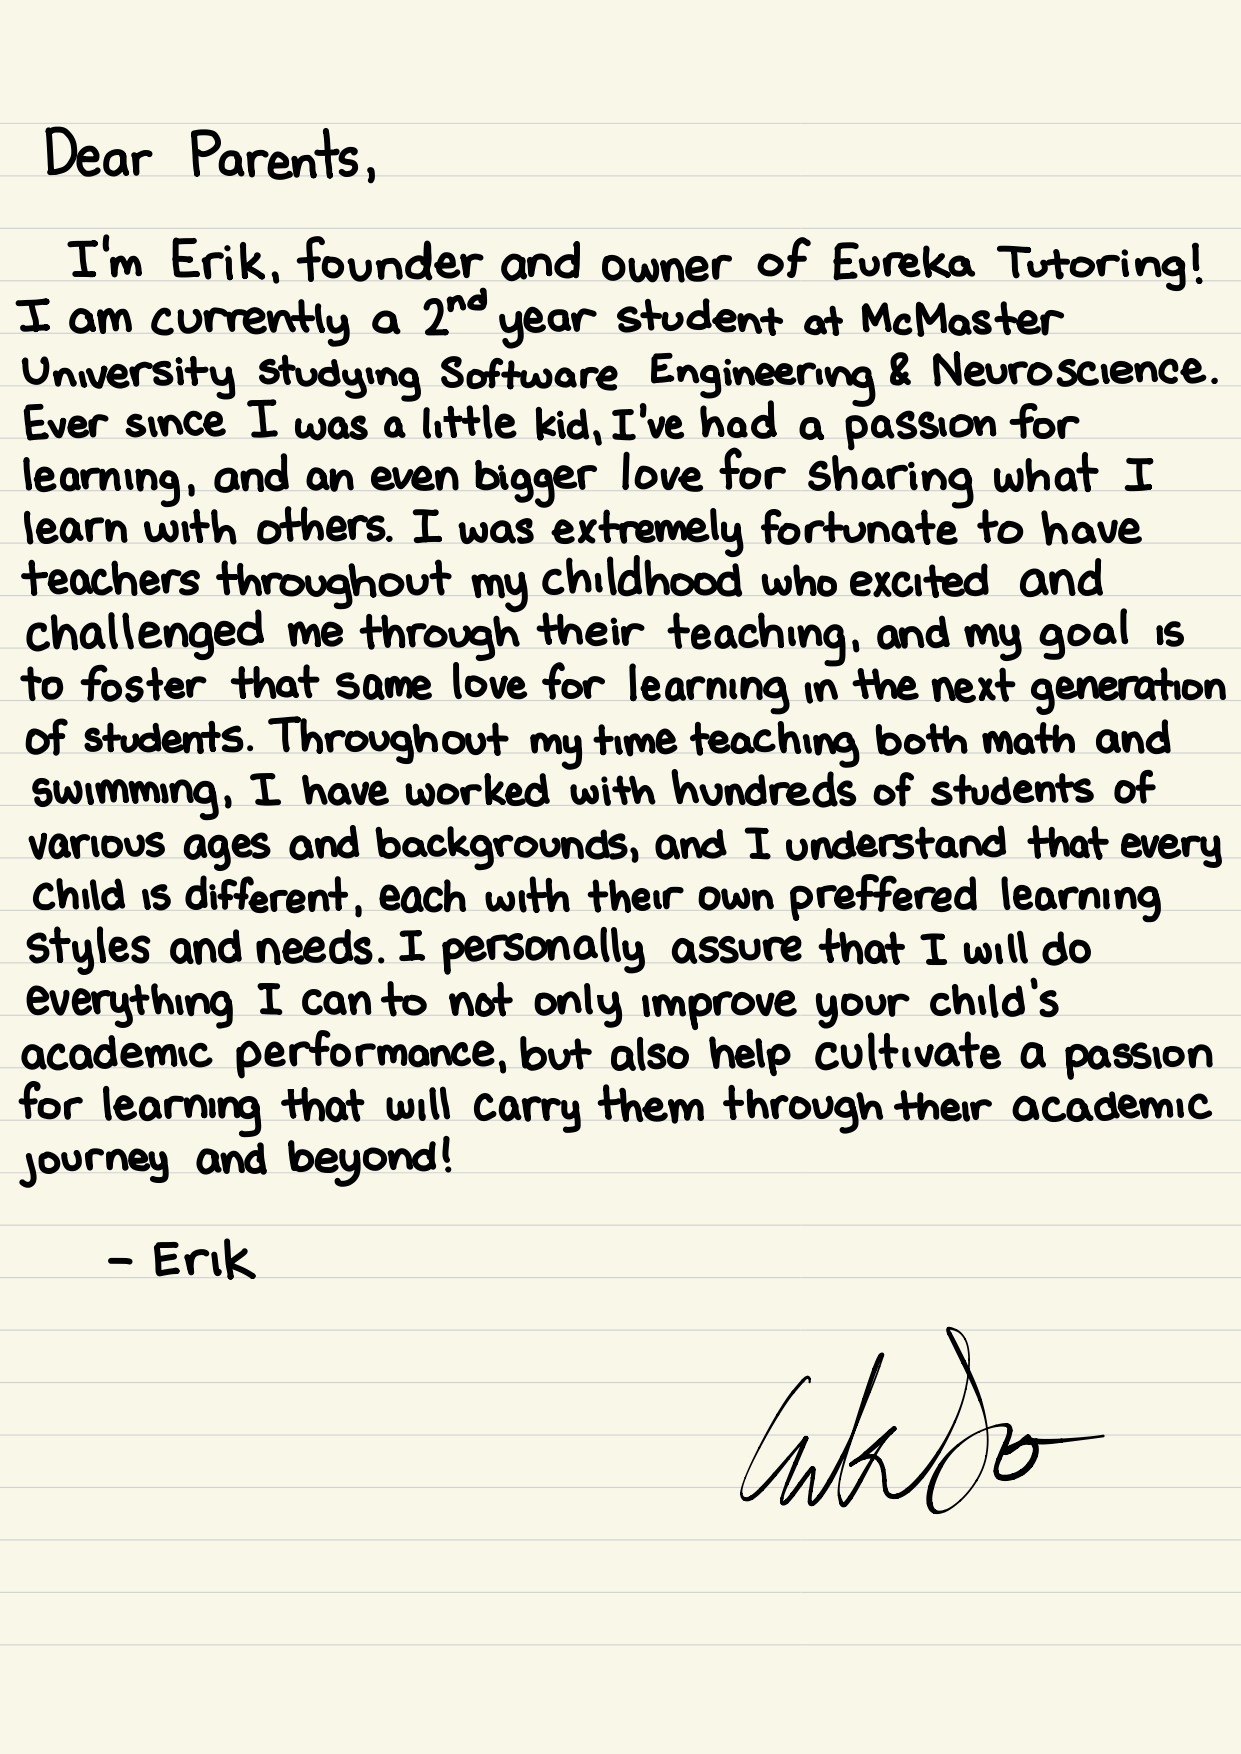 Dear Parents,
I'm Erik, founder and owner of Eureka Tutoring!
I am currently a 2nd year student at McMaster
University studying Software Engineering & Neuroscience.
Ever since I was a little kid, I've had a passion for
learning, and an even bigger love for sharing what I
learn with others. I was extremely fortunate to have
teachers throughout my childhood who excited and
challenged me through their teaching, and my goal is
to foster that same love for learning in the next generation
of students. Throughout my time teaching both math and
swimming, I have worked with hundreds of students of
various ages and backgrounds, and I understand that every
child is different, each with their own preffered learning
styles and needs. I personally assure that I will do
everything I can to not only improve your child's
academic performance, but also help cultivate a passion
for learning that will carry them through their academic
journey and beyond!
- Erik